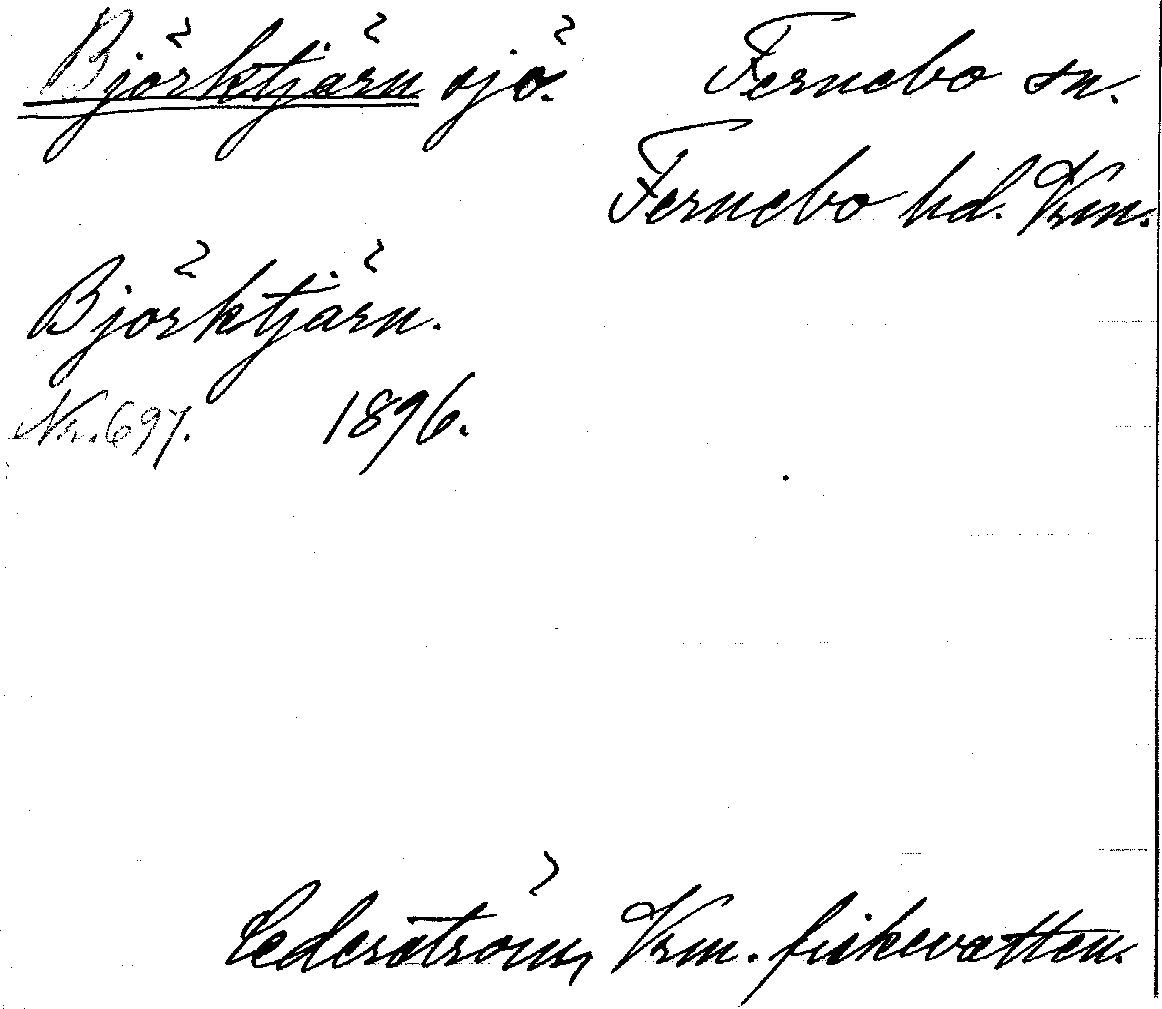 Björktjärn sjö. Fernebo sn.
Fernebo hd. Vrm.
Björktjärn.
Nr. 697. 1896.
Cederström, Vrm. fiskevatten.